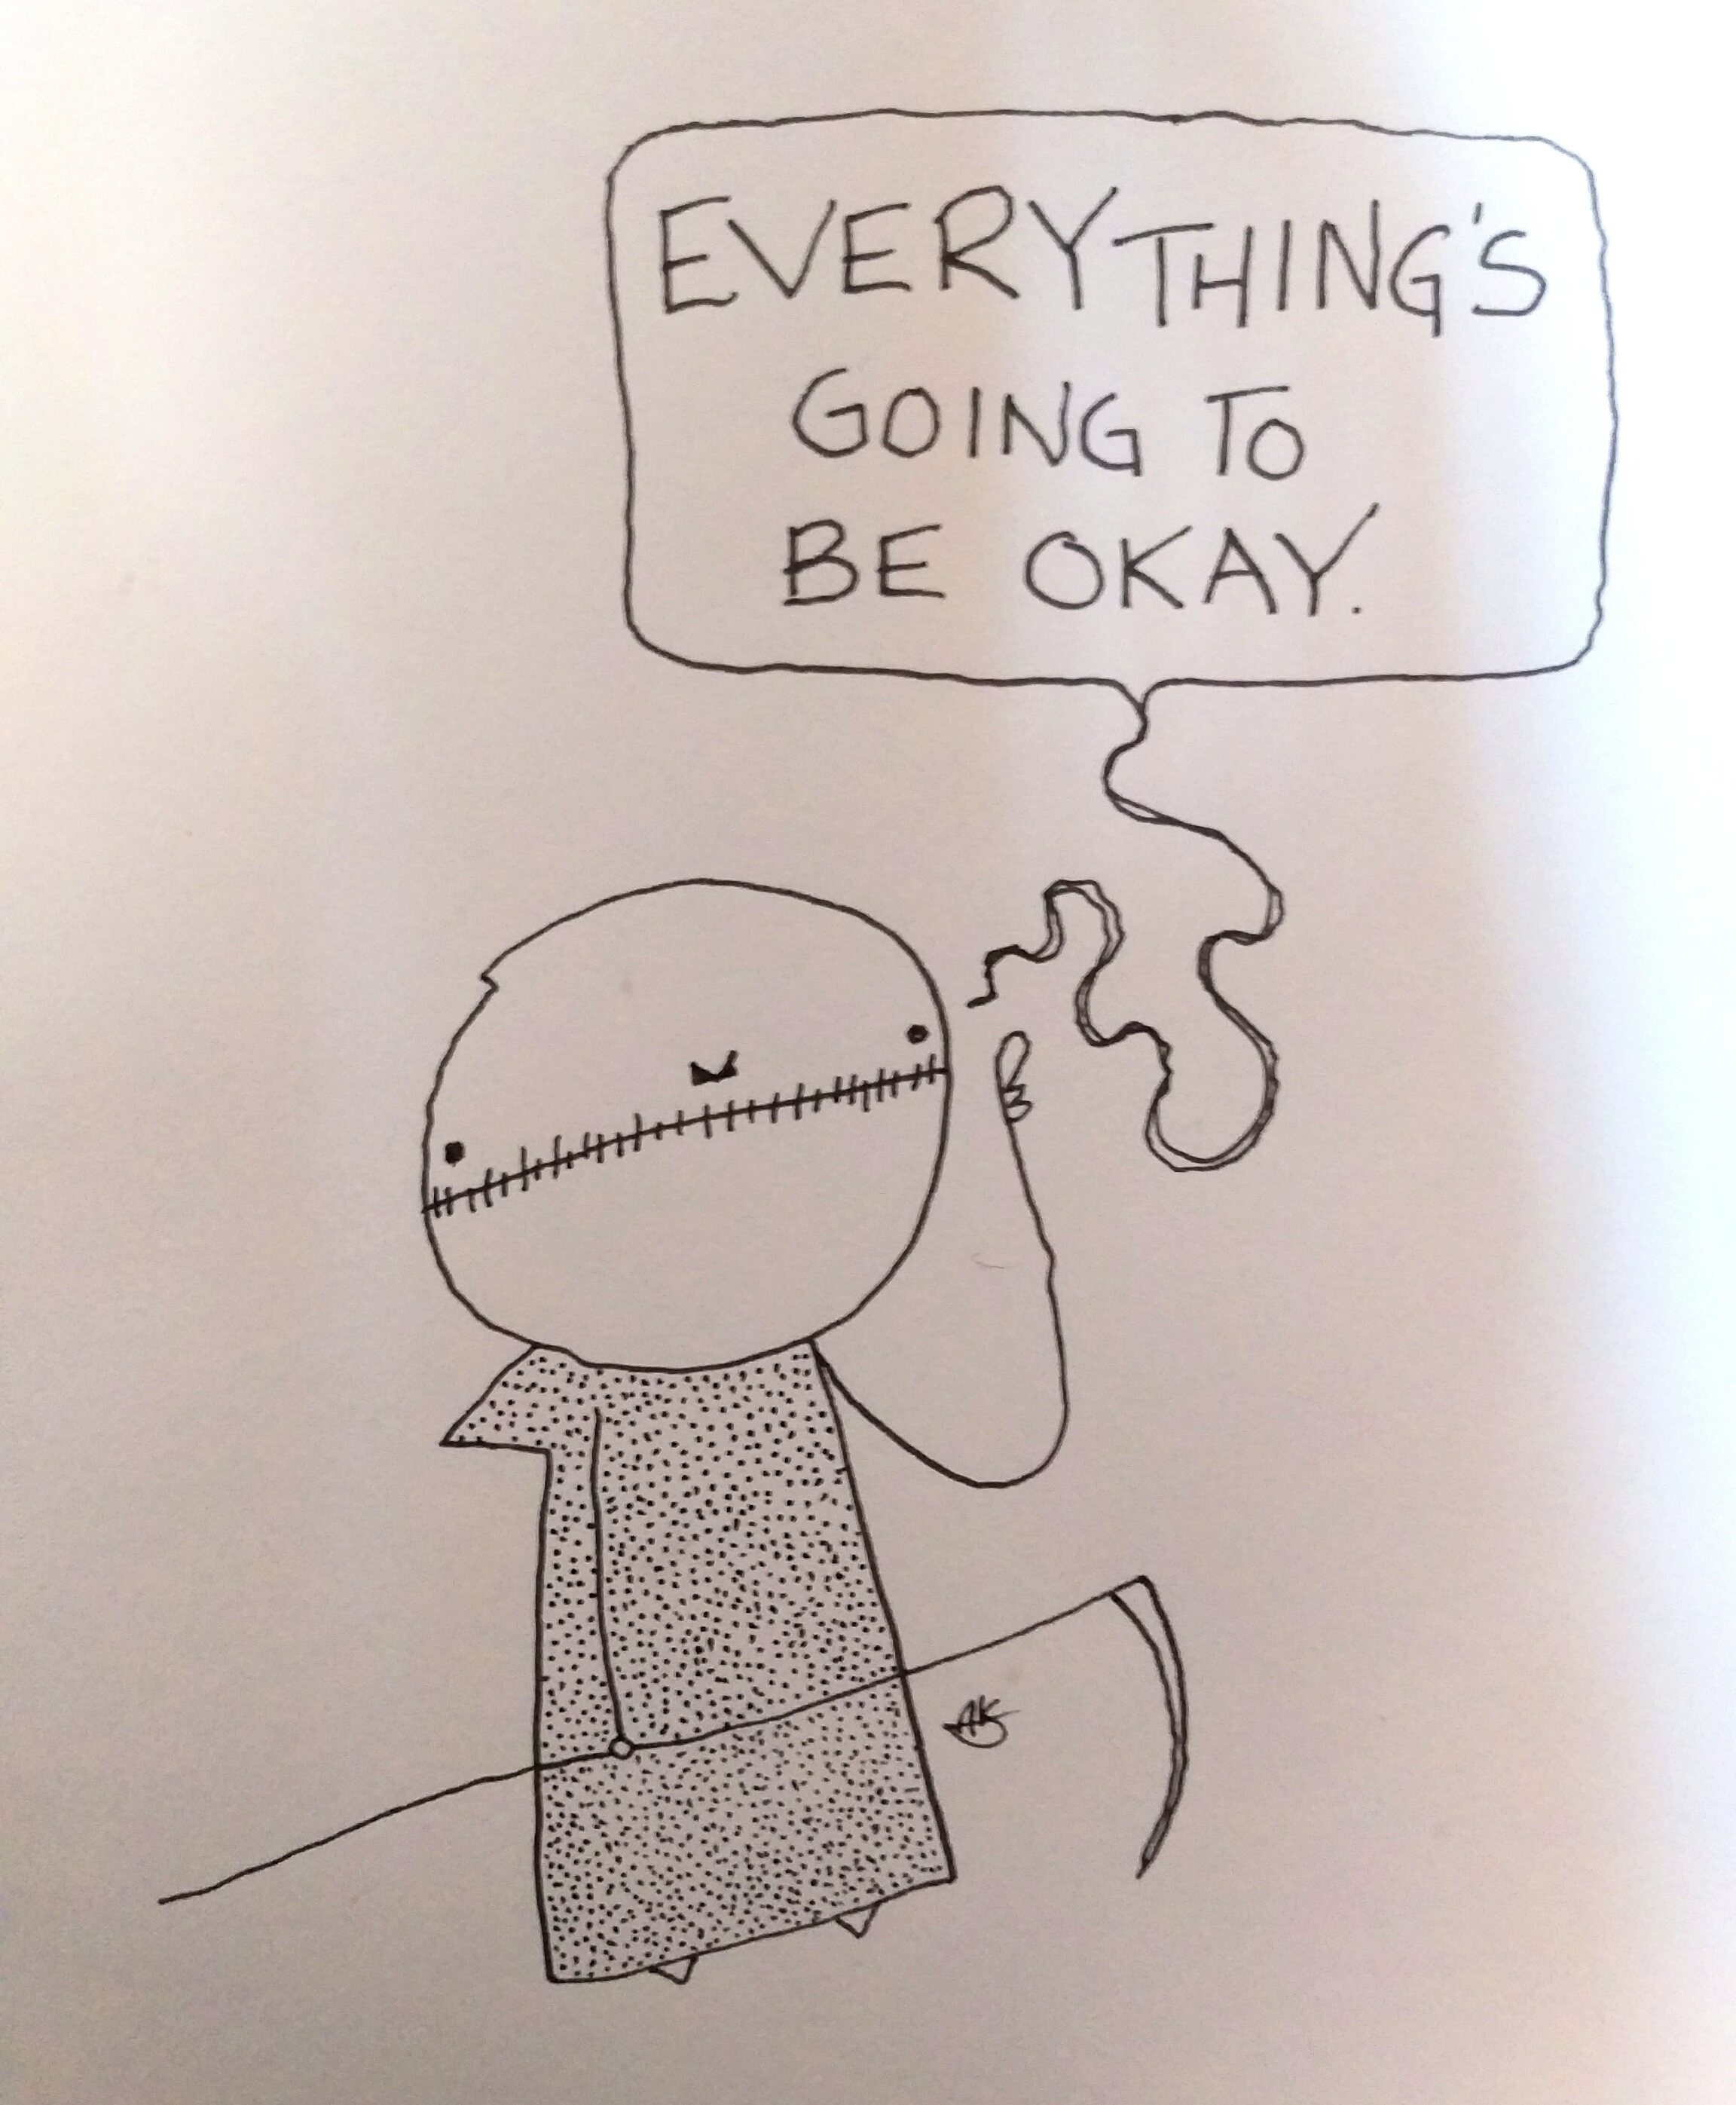 EVERYTHING'S
GOING TO
BE OKAY.
AK